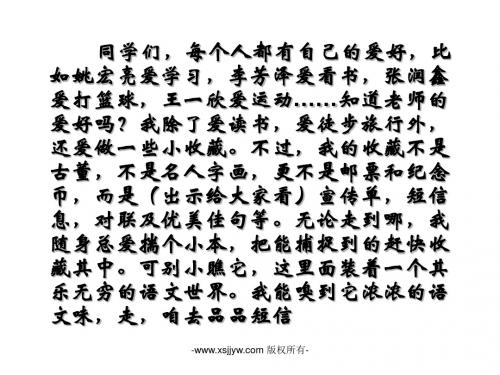 同学们，每个人都有自己的爱好，比
如姚宏亮爱学习，李芳泽爱看书，张润鑫
爱打篮球，王一欣爱运动……知道老师的
爱好吗？我除了爱读书，爱徒步旅行外，
还爱做一些小收藏。不过，我的收藏不是
古董，不是名人字画，更不是邮票和纪念
币，而是（出示给大家看）宣传单，短信
息，对联及优美佳句等。无论走到哪，我
随身总爱揣个小本，把能捕捉到的赶快收
藏其中。可别小瞧它，这里面装着一个其
乐无穷的语文世界。我能嗅到它浓浓的语
文味，走，咱去品品短信
-www.xsjjyw.com 版权所有-